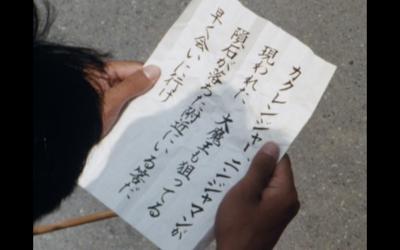 カクレンジャー、ニンジャマンが
現われた 大魔王も狙ってる
隕石が落ちた附近にいる筈だ
早く会いに行け